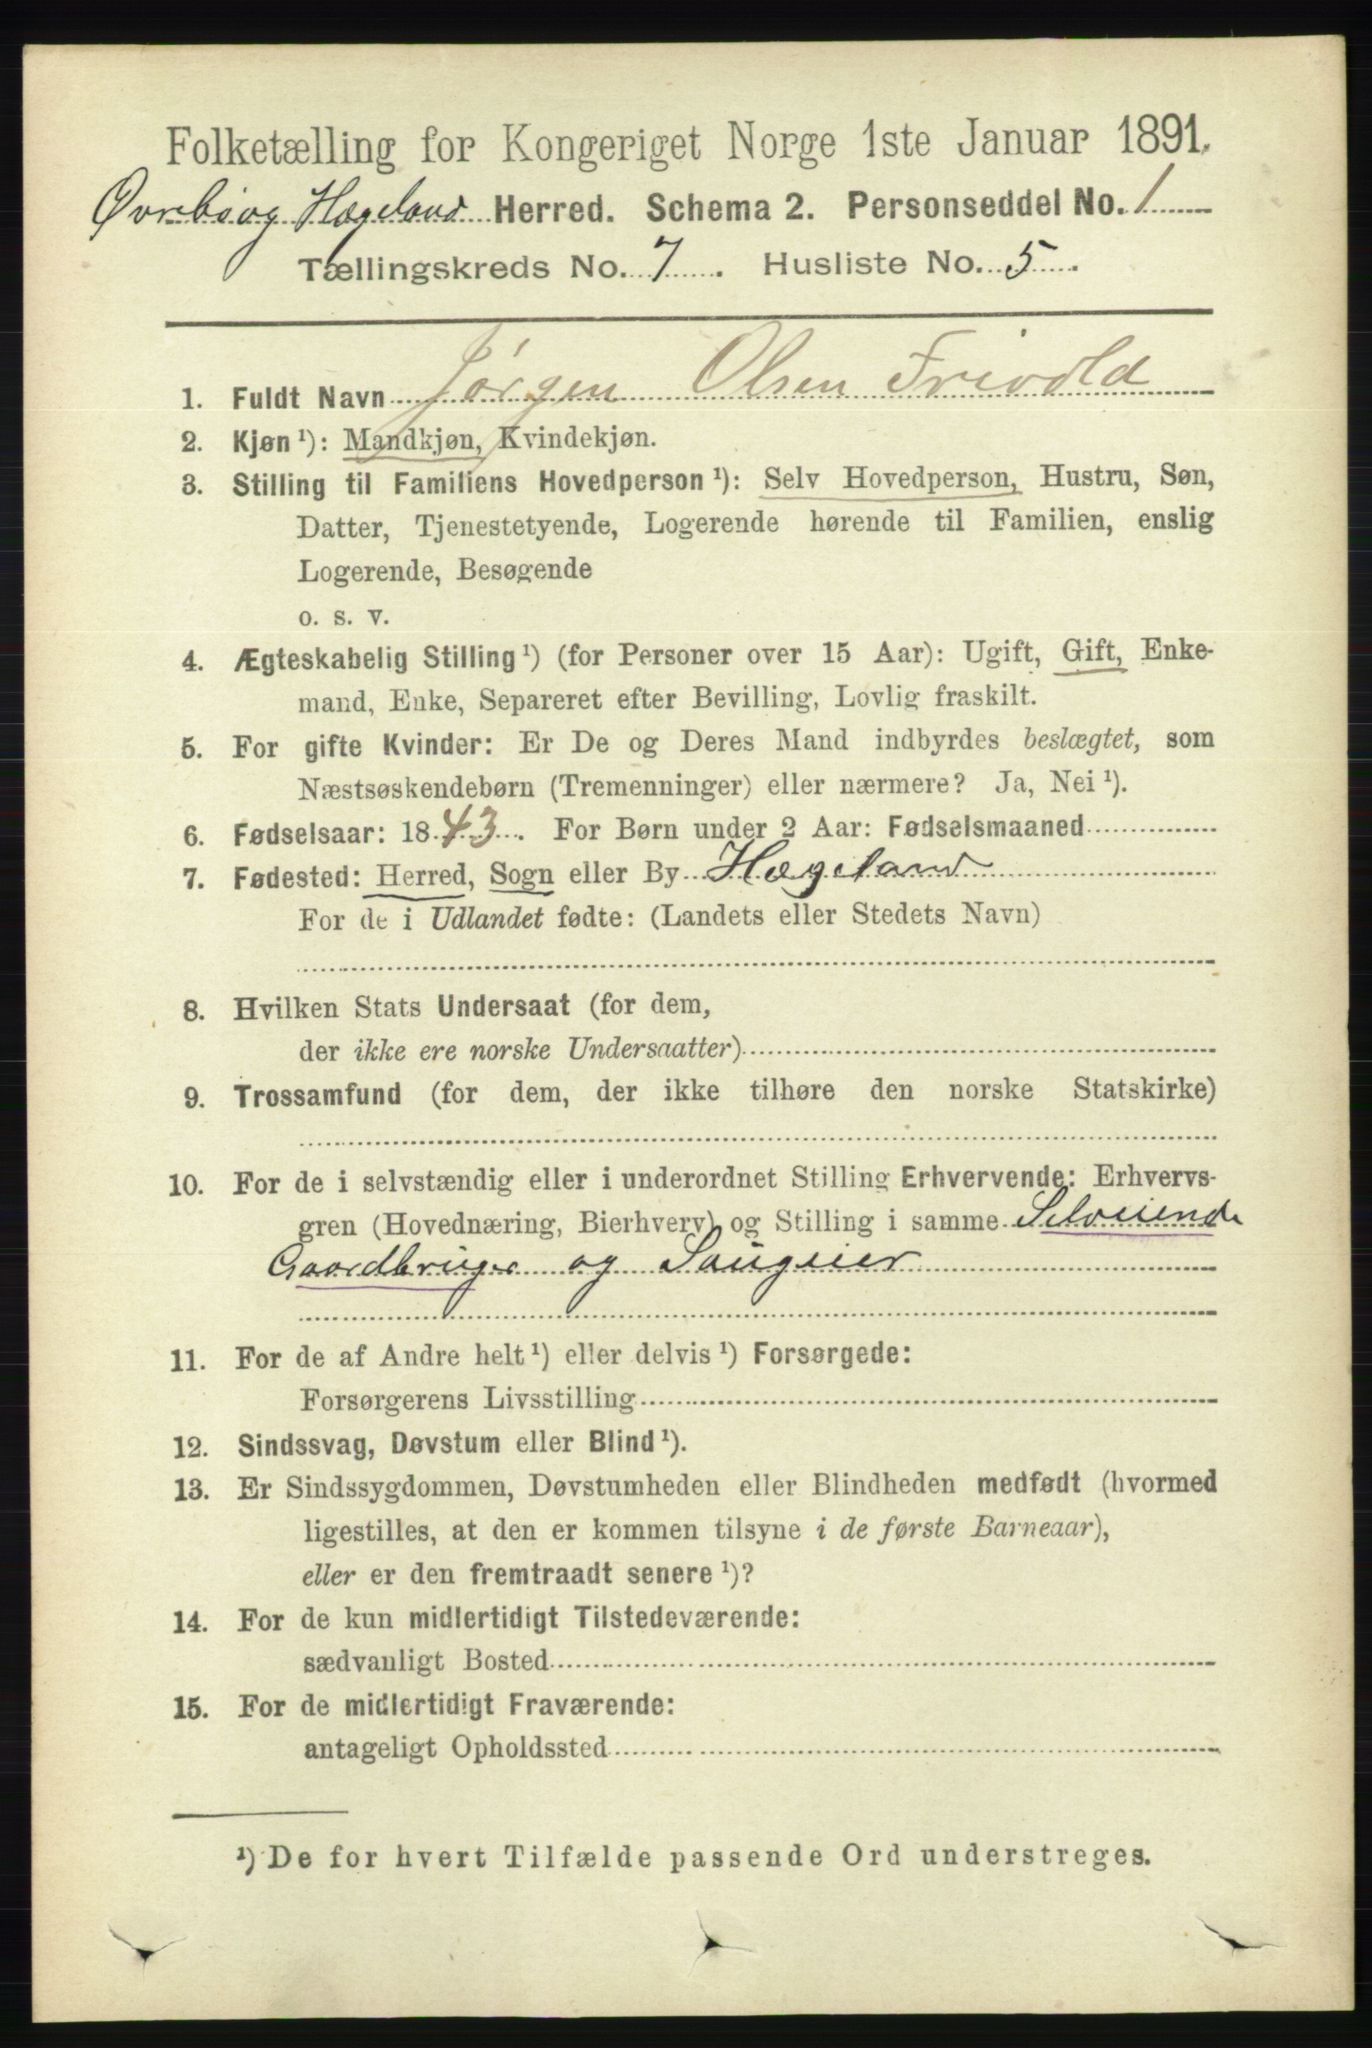 Folketælling for Kongeriget Norge 1ste Januar 1891.
Øvrebø og Hægeland Herred. Schema 2. Personseddel No. 1
Tællingskreds No. 7. Husliste No. 5.
1. Fuldt Navn Jørgen Olsen Frivold
2. Kjøn ¹): Mandkjøn, Kvindekjøn.
3. Stilling til Familiens Hovedperson ¹): Selv Hovedperson, Hustru, Søn,
Datter, Tjenestetyende, Logerende hørende til Familien, enslig
Logerende, Besøgende
o. s. v.
4. Ægteskabelig Stilling ¹) (for Personer over 15 Aar): Ugift, Gift, Enke-
mand, Enke, Separeret efter Bevilling, Lovlig fraskilt.
5. For gifte Kvinder: Er De og Deres Mand indbyrdes beslægtet, som
Næstsøskendebørn (Tremenninger) eller nærmere? Ja, Nei ¹).
6. Fødselsaar: 1843. For Børn under 2 Aar: Fødselsmaaned
7. Fødested: Herred, Sogn eller By Hægeland
For de i Udlandet fødte: (Landets eller Stedets Navn)
8. Hvilken Stats Undersaat (for dem,
der ikke ere norske Undersaatter)
9. Trossamfund (for dem, der ikke tilhøre den norske Statskirke)
10. For de i selvstændig eller i underordnet Stilling Erhvervende: Erhvervs-
gren (Hovednæring, Bierhverv) og Stilling i samme Selveiende
Gaardbruger og Saugeier
11. For de af Andre helt ¹) eller delvis ¹) Forsørgede:
Forsørgerens Livsstilling
12. Sindssvag, Døvstum eller Blind ¹).
13. Er Sindssygdommen, Døvstumheden eller Blindheden medfødt (hvormed
ligestilles, at den er kommen tilsyne i de første Barneaar),
eller er den fremtraadt senere ¹)?
14. For de kun midlertidigt Tilstedeværende:
sædvanligt Bosted
15. For de midlertidigt Fraværende:
antageligt Opholdssted
¹) De for hvert Tilfælde passende Ord understreges.